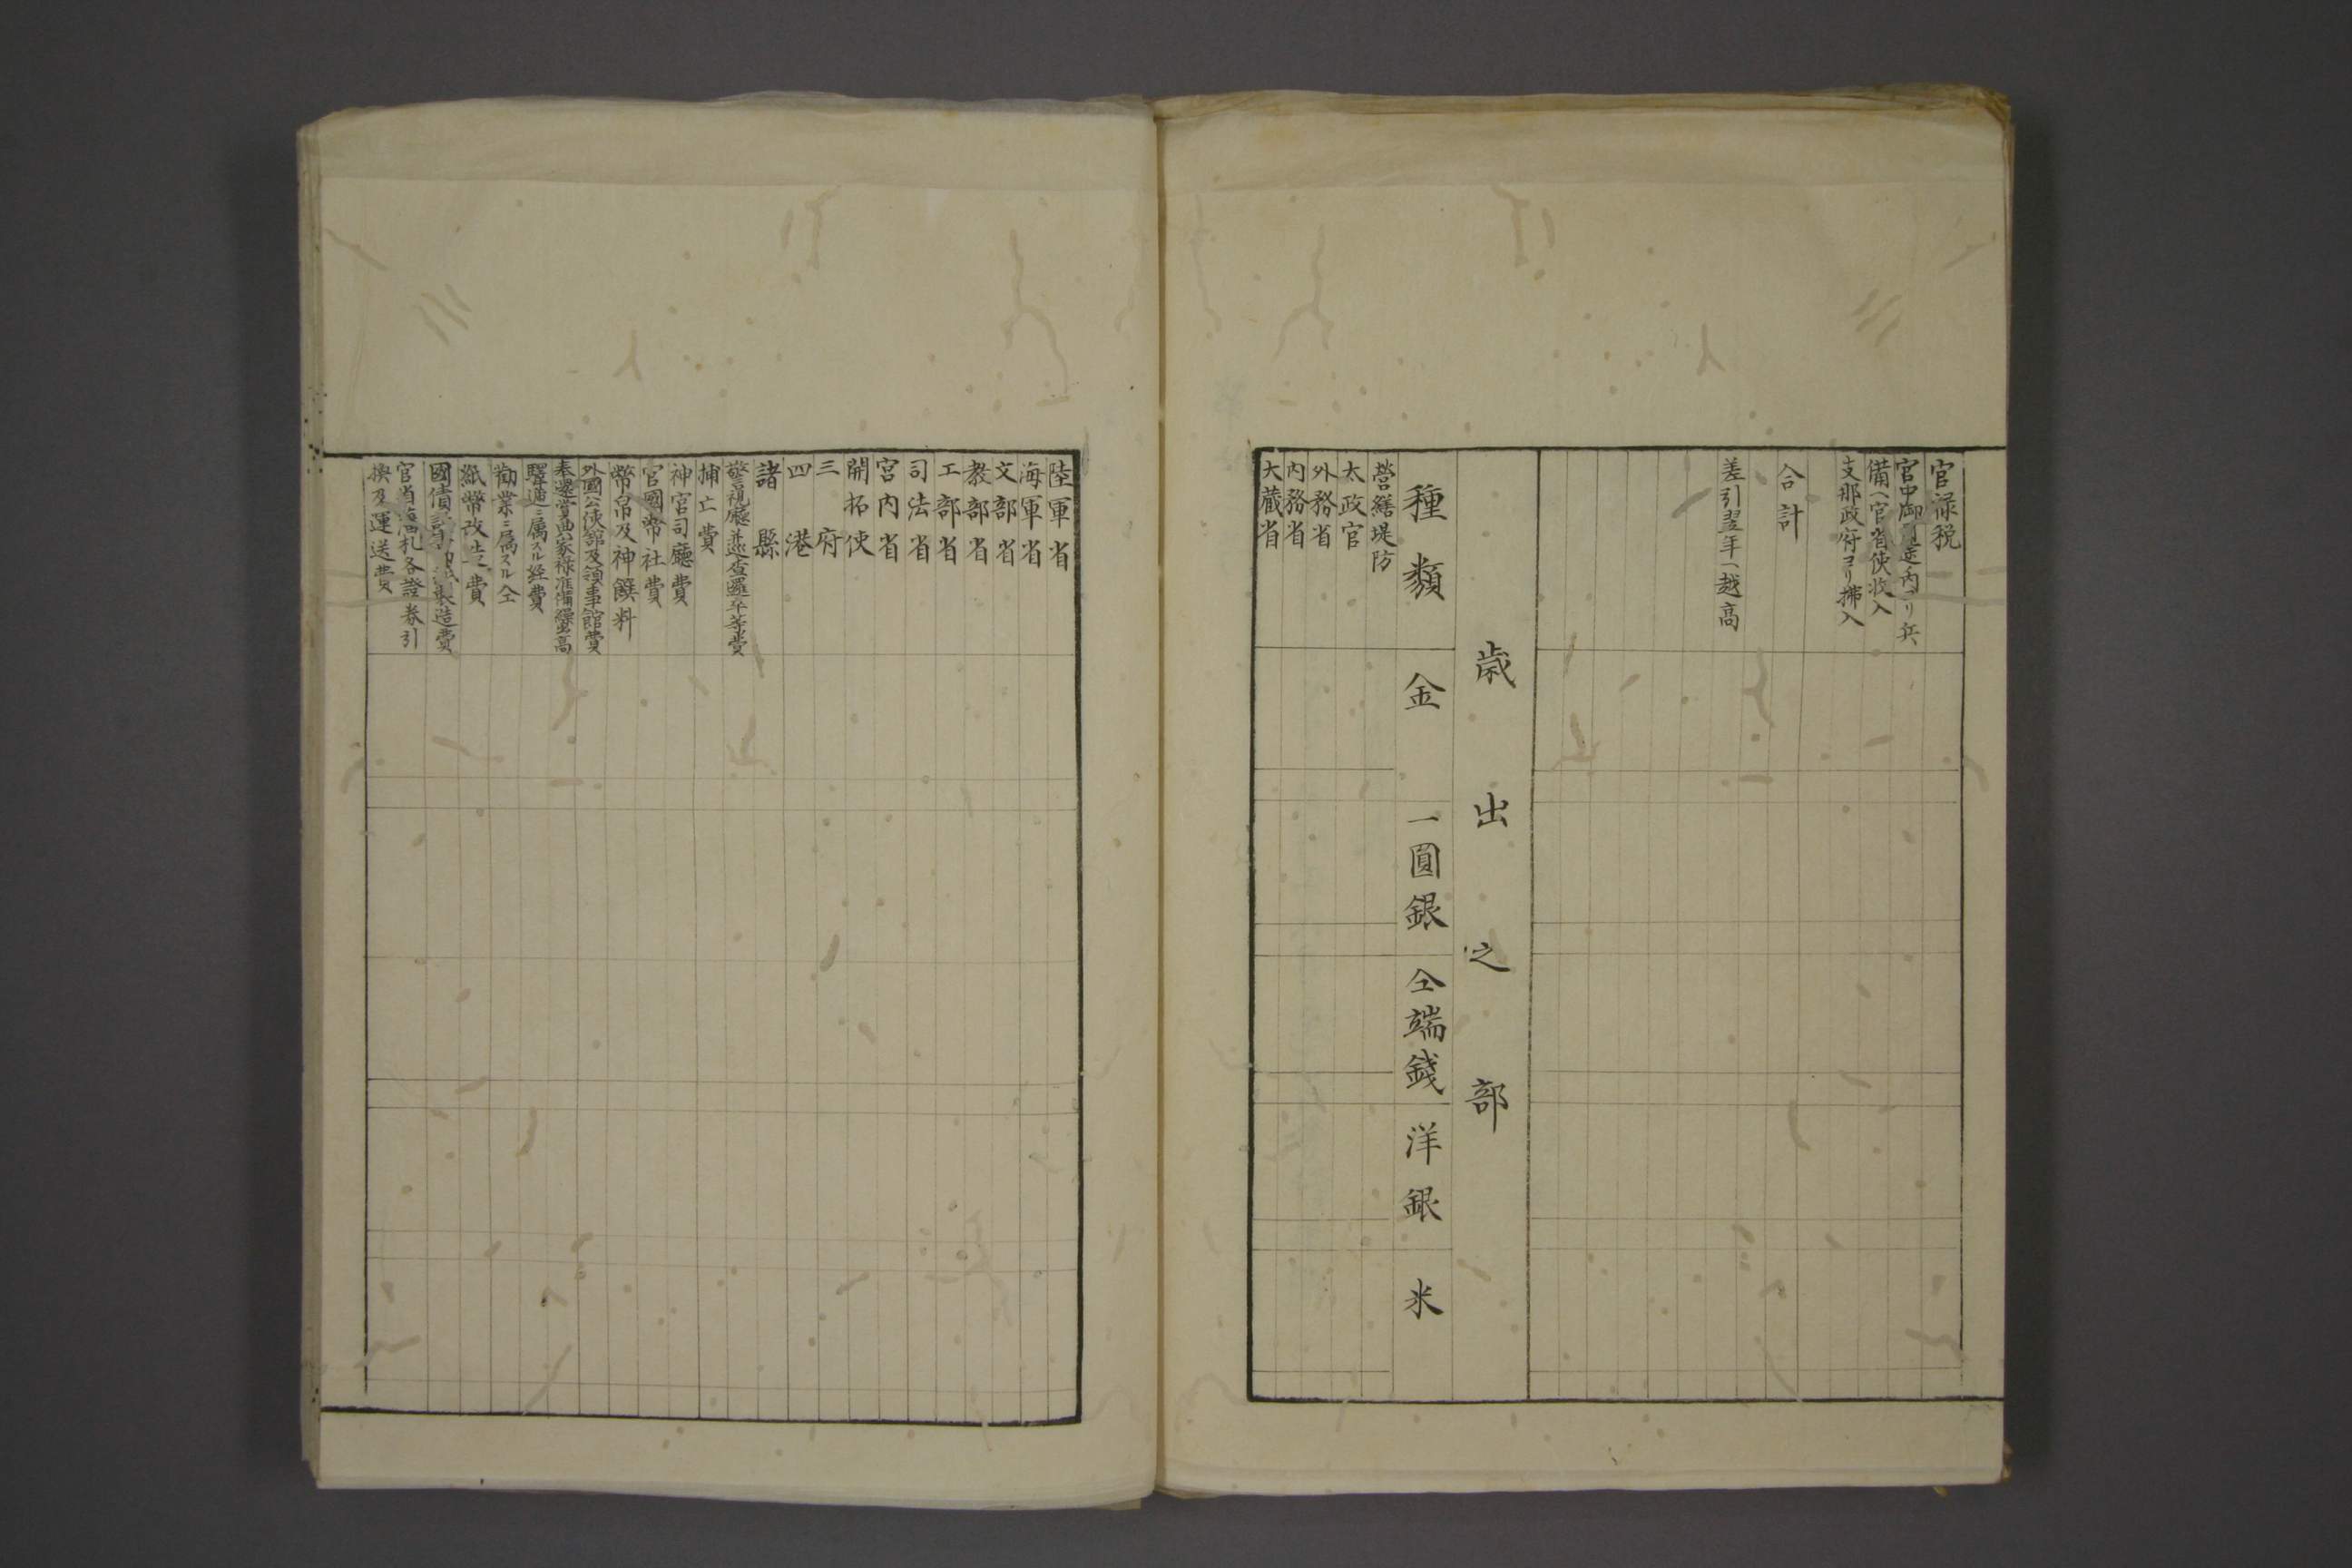 官禄税
官中御定内ヨリ兵
備ヘ官省使收入
支那政府ヨリ拂入
合計
差引翌年ヘ越高
歳出之部
種類 金 一圓銀 仝端錢 洋銀 米
營繕堤防
太政官
外務省
内務省
大藏省
陸軍省
海軍省
文部省
教部省
工部省
司法省
宮内省
開拓使
三府
四港
諸縣
警視廳並查邏卒等費
捕亡費
神官司廳費
官國幣社費
幣帛及神饌料
外國公使館及領事館費
奉還賞典家祿准備繰出高
驛遞ニ属スル経費
勸業ニ属スル仝
紙幣改造費
國債製造費
官省藩札各證券引
換及運送費